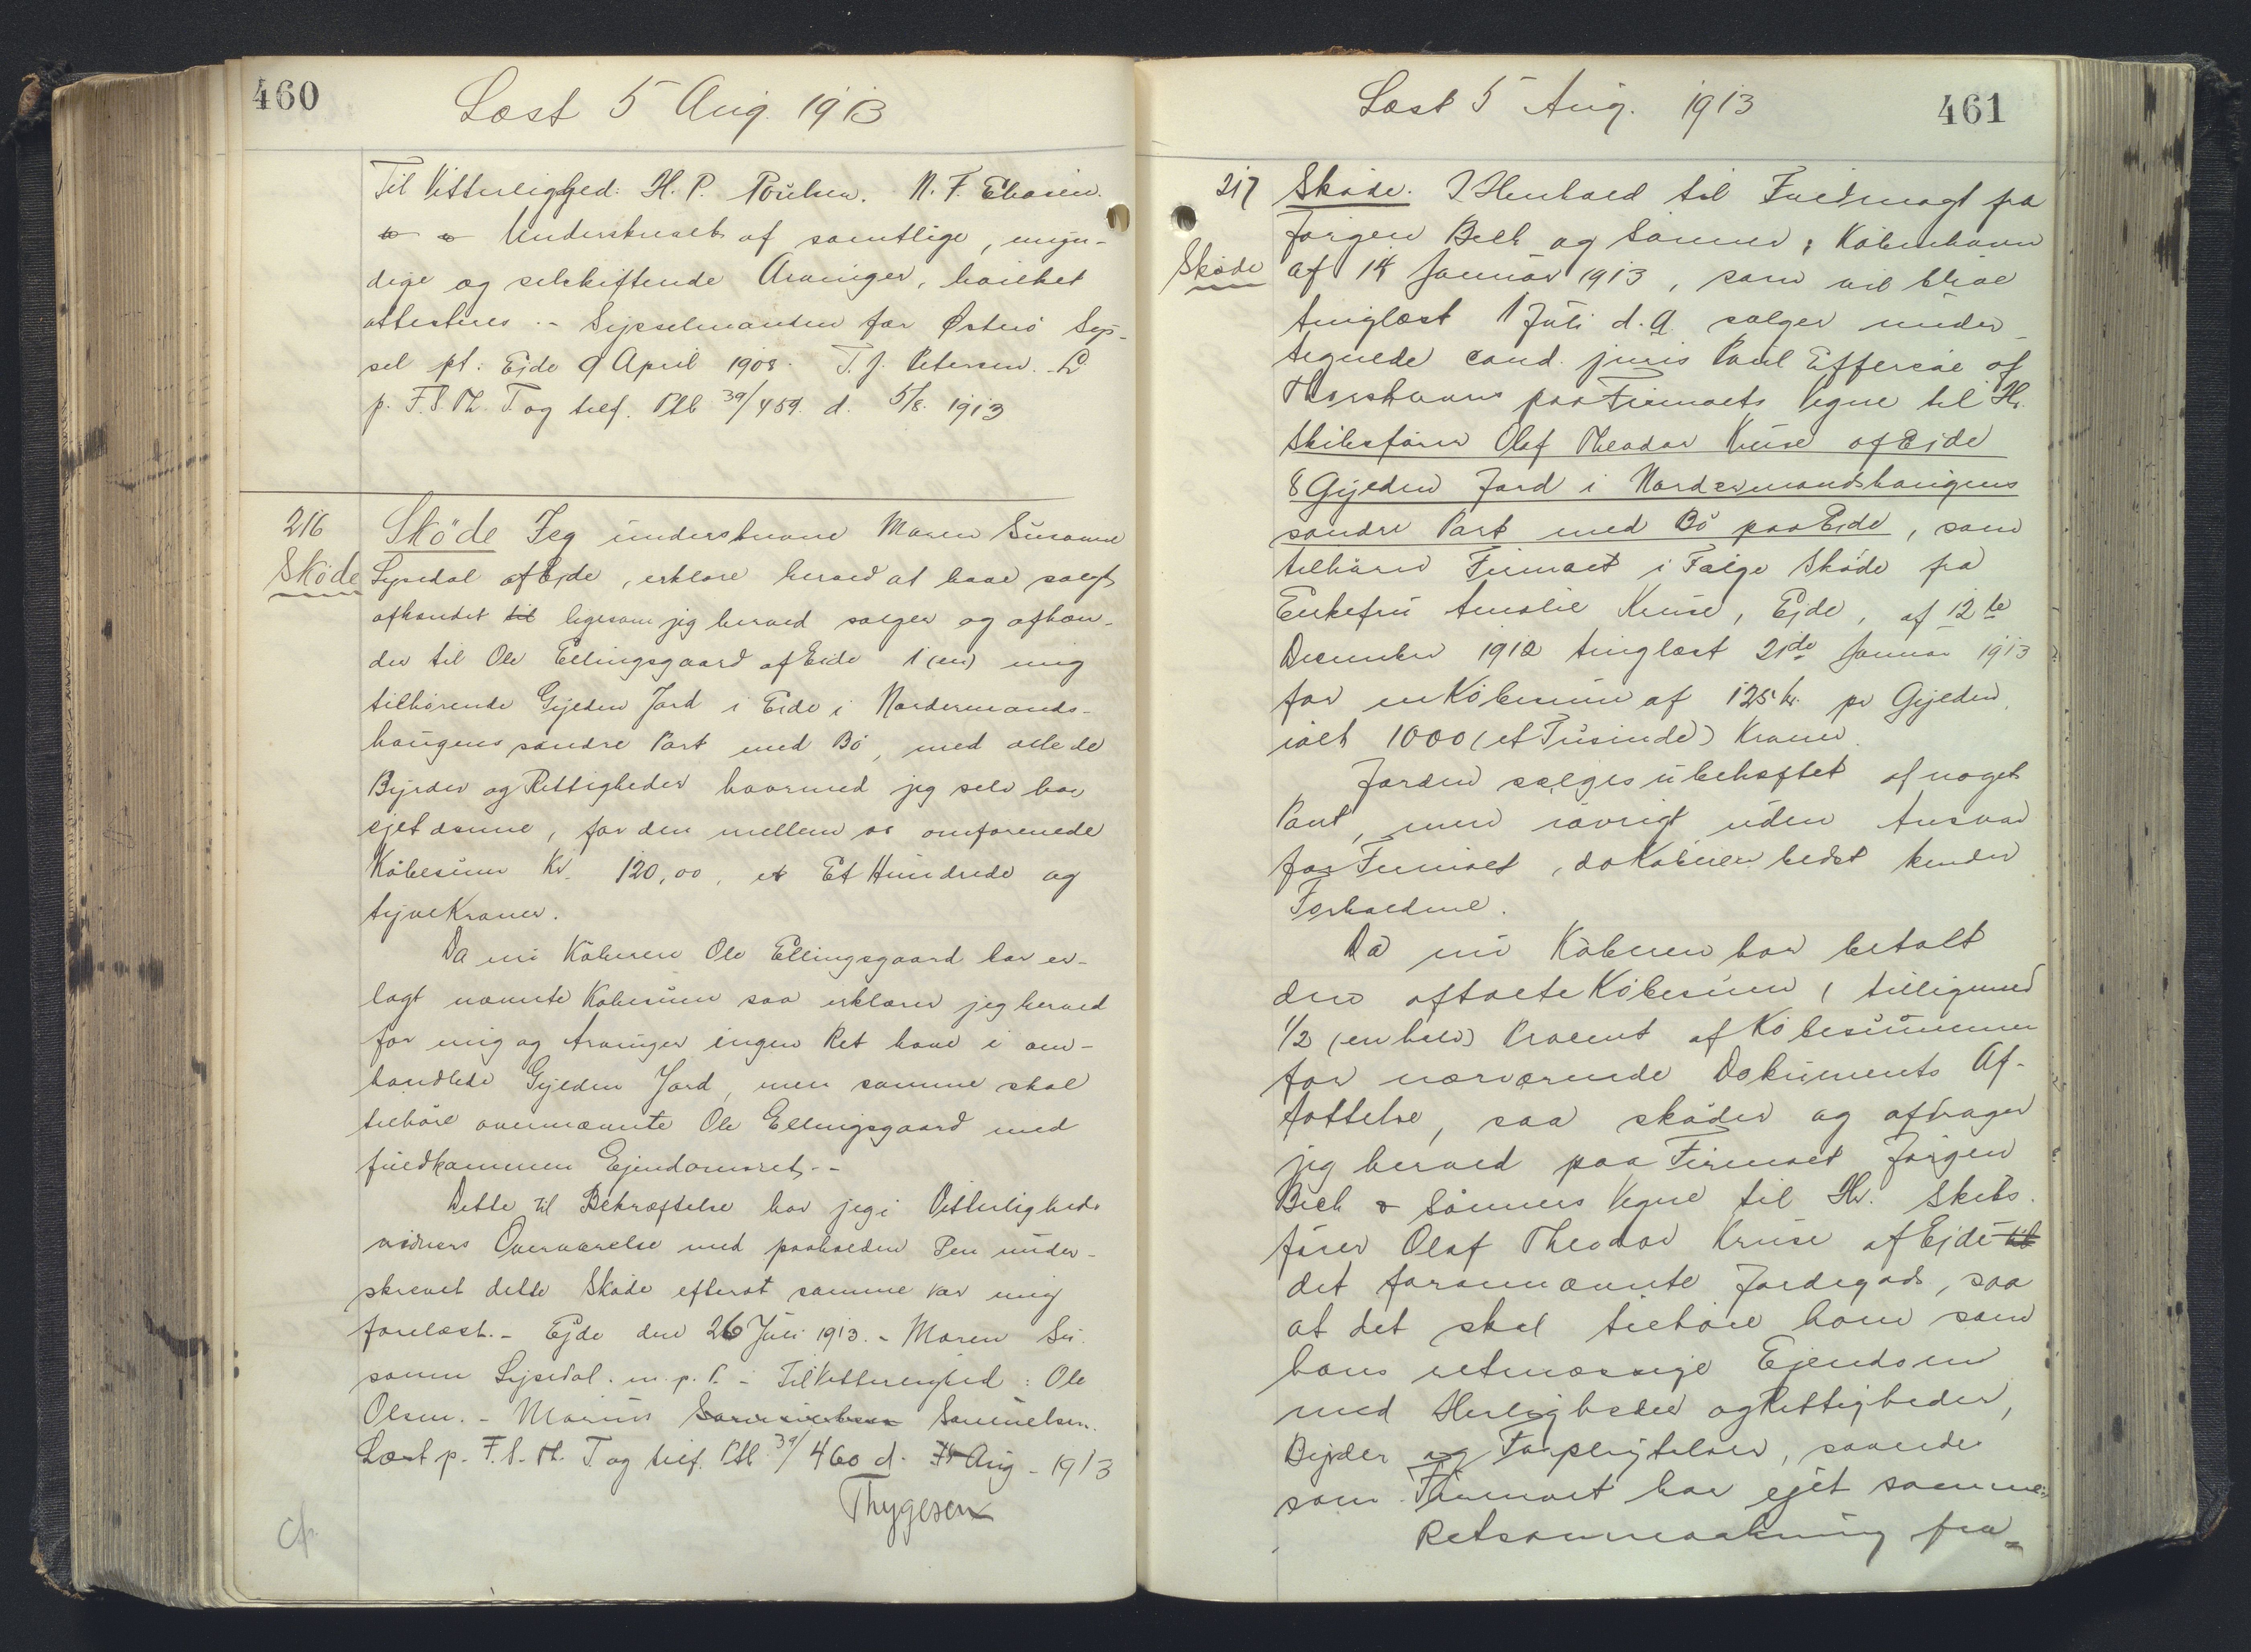 460
Læst 5 Aug. 1913
Til Vitterlighed: H. P. Poulsen. N. F. Eliasen.
Underskrevet af samtlige, myn-
dige og selvskiftende Arvinger, hvilket
attesteres. - Sysselmanden for Østerö Sys-
sel pt: Ejde 9 April 1908. T. J. Petersen.
p. F. S. Th. T og tilf. Ptb 39/459. d. 5/8. 1913
216
Sköde
Sköde Jeg underskrevne Maren Susanne
Lysedal af Ejde, erklærer herved at have solgt
afhændet til ligesom jeg herved sælger og afhæn-
der til Ole Ellingsgaard af Eide 1 (en) mig
tilhörende Gylden Jord i Eide i Nordermands-
haugens söndre Part med Bö, med alle de
Byrder og Rettigheder hvormed jeg selv har
ejet denne, for den mellem os omforenede
Köbesum Kr. 120,00, et Et Hundrede og
tyve Kroner.
Da nu Köberen Ole Ellingsgaard har er-
lagt nævnte Köbesum saa erklærer jeg herved
for mig og Arvinger ingen Ret have i om-
handlede Gylden Jord, men samme skal
tilhöre ovennævnte Ole Ellingsgaard med
fuldkommen Ejendomsret. -
Dette til Bekræftelse har jeg i Vitterligheds
vidners Overværelse med paaholden Pen under-
skrevet dette Sköde efterat samme var mig
forelæst. - Ejde den 26 Juli 1913. - Maren Su-
sanne Lysedal. m. p. P. - Til Vitterlighed: Ole
Olsen. - Marius Samuelsen.
Læst p. F. S. Th. T. og tilf. Ptb 39/460 d. 5 Aug - 1913
Thygesen
cfr.
Læst 5 Aug. 1913
461
217
Sköde
Sköde. I Henhold til Fuldmagt fra
Jörgen Bech og Sönner, Köbenhavn
af 14 Januar 1913, som vil blive
tinglæst 1 Juli d. A. sælger under-
tegnede cand. juris Poul Effersöe af
Thorshavn paa Firmaets Vegne til Hr.
Skibsförer Olaf Theodor Kruse af Ejde
8 Gylden Jord i Nordermandshaugens
söndre Part med Bö paa Ejde, som
tilhörer Firmaet i Fölge Sköde fra
Enkefru Amalie Kruse, Ejde, af 12te
December 1912 tinglæst 21de Januar 1913
for en Köbesum af 125 kr. pr Gylden,
ialt 1000 (et Tusinde) Kroner.
Jorden sælges ubehæftet af noget
Pant, men iövrigt uden Ansvar
for Firmaet, da Köberen bedst kender
Forholdene.
Da nu Köberen har betalt
den aftalte Köbesum, tilligemed
1/2 (en halv) Procent af Köbesummen
for nærværende Dokuments Af-
fattelse, saa sköder og afdrager
jeg herved paa Firmaet Jörgen
Bech & Sönners Vegne til Hr. Skibs-
förer Olaf Theodor Kruse af Ejde til
det forannævnte Jordegods, saa
at det skal tilhöre ham som
hans retmæssige Ejendom
med Herligheder og Rettigheder,
Byrder og Forpligtelser, saavede
som Firmaet har ejet samme.
Retsanmærkning fra-